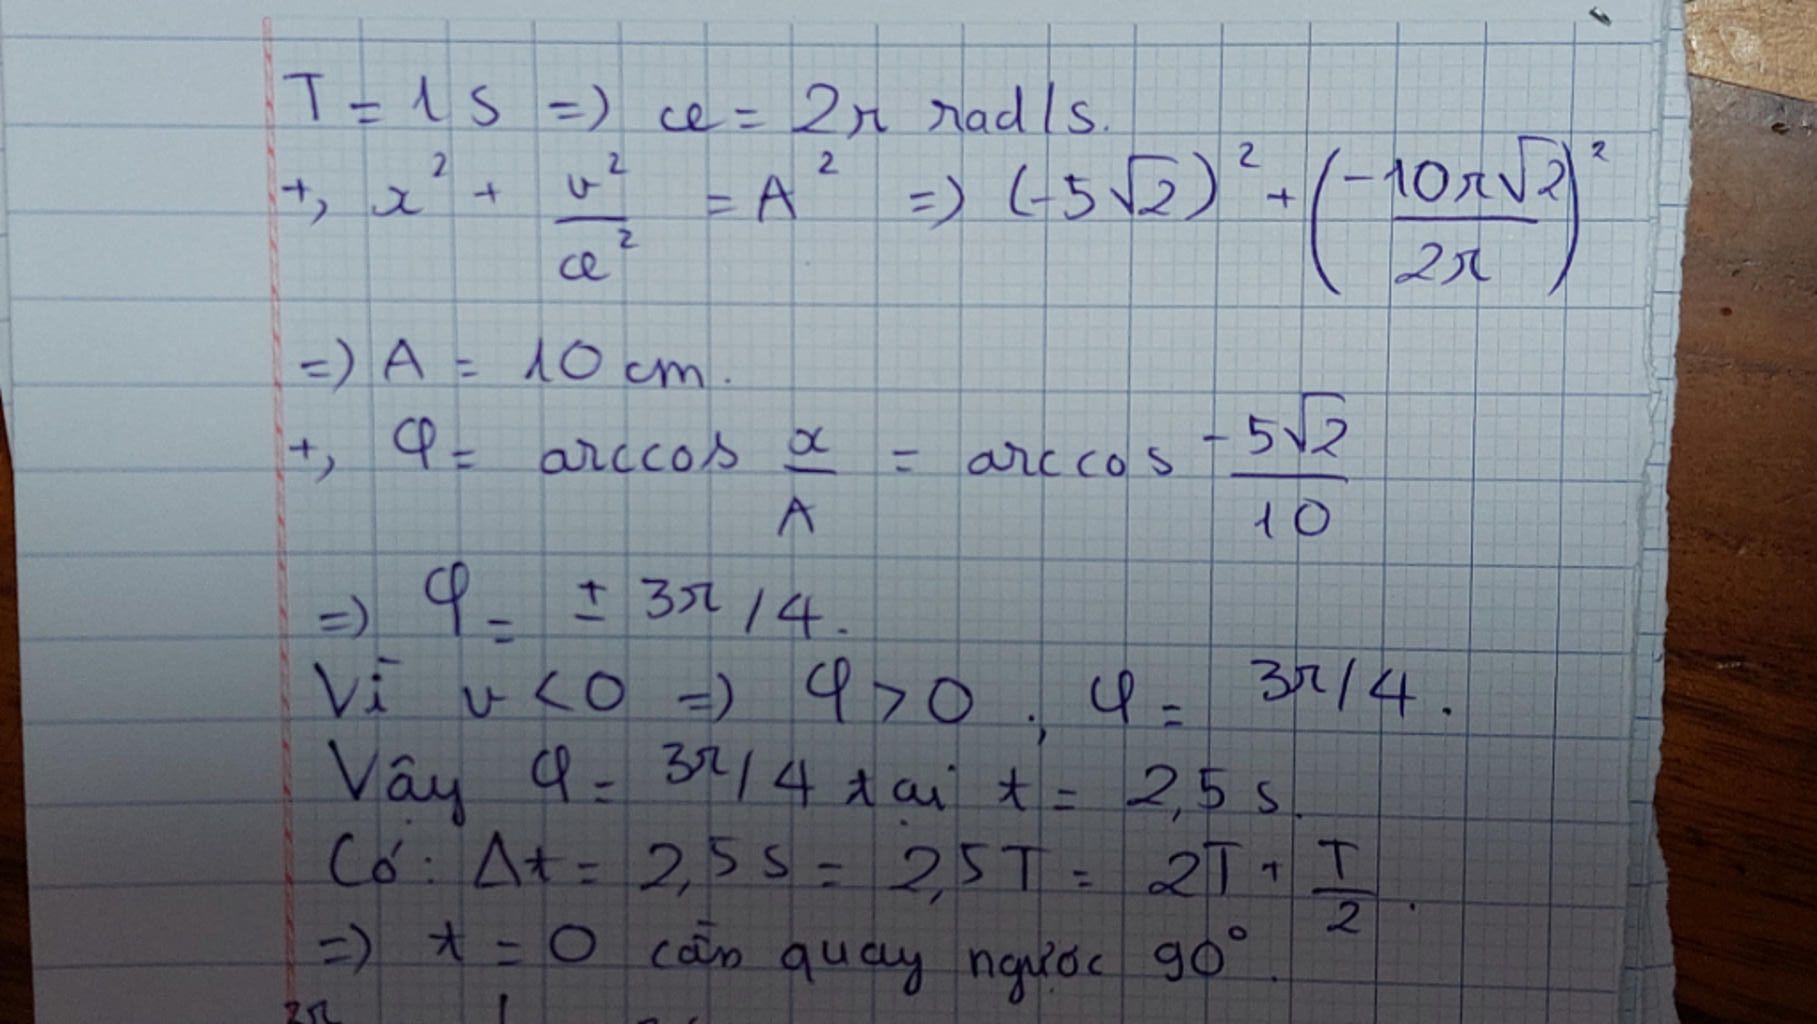 T = 1 s => ω = 2π rad/s.
+, x² + v²/ω² = A² => (-5√2)² + (-10π√2/2π)²
=> A = 10 cm.
+, φ = arccos x/A = arccos -5√2/10
=> φ = ± 3π/4.
Vì v < 0 => φ > 0 ; φ = 3π/4.
Vậy φ = 3π/4 tại t = 2,5 s.
Có: Δt = 2,5 s = 2,5T = 2T + T/2.
=> t = 0 cần quay ngược 90°.